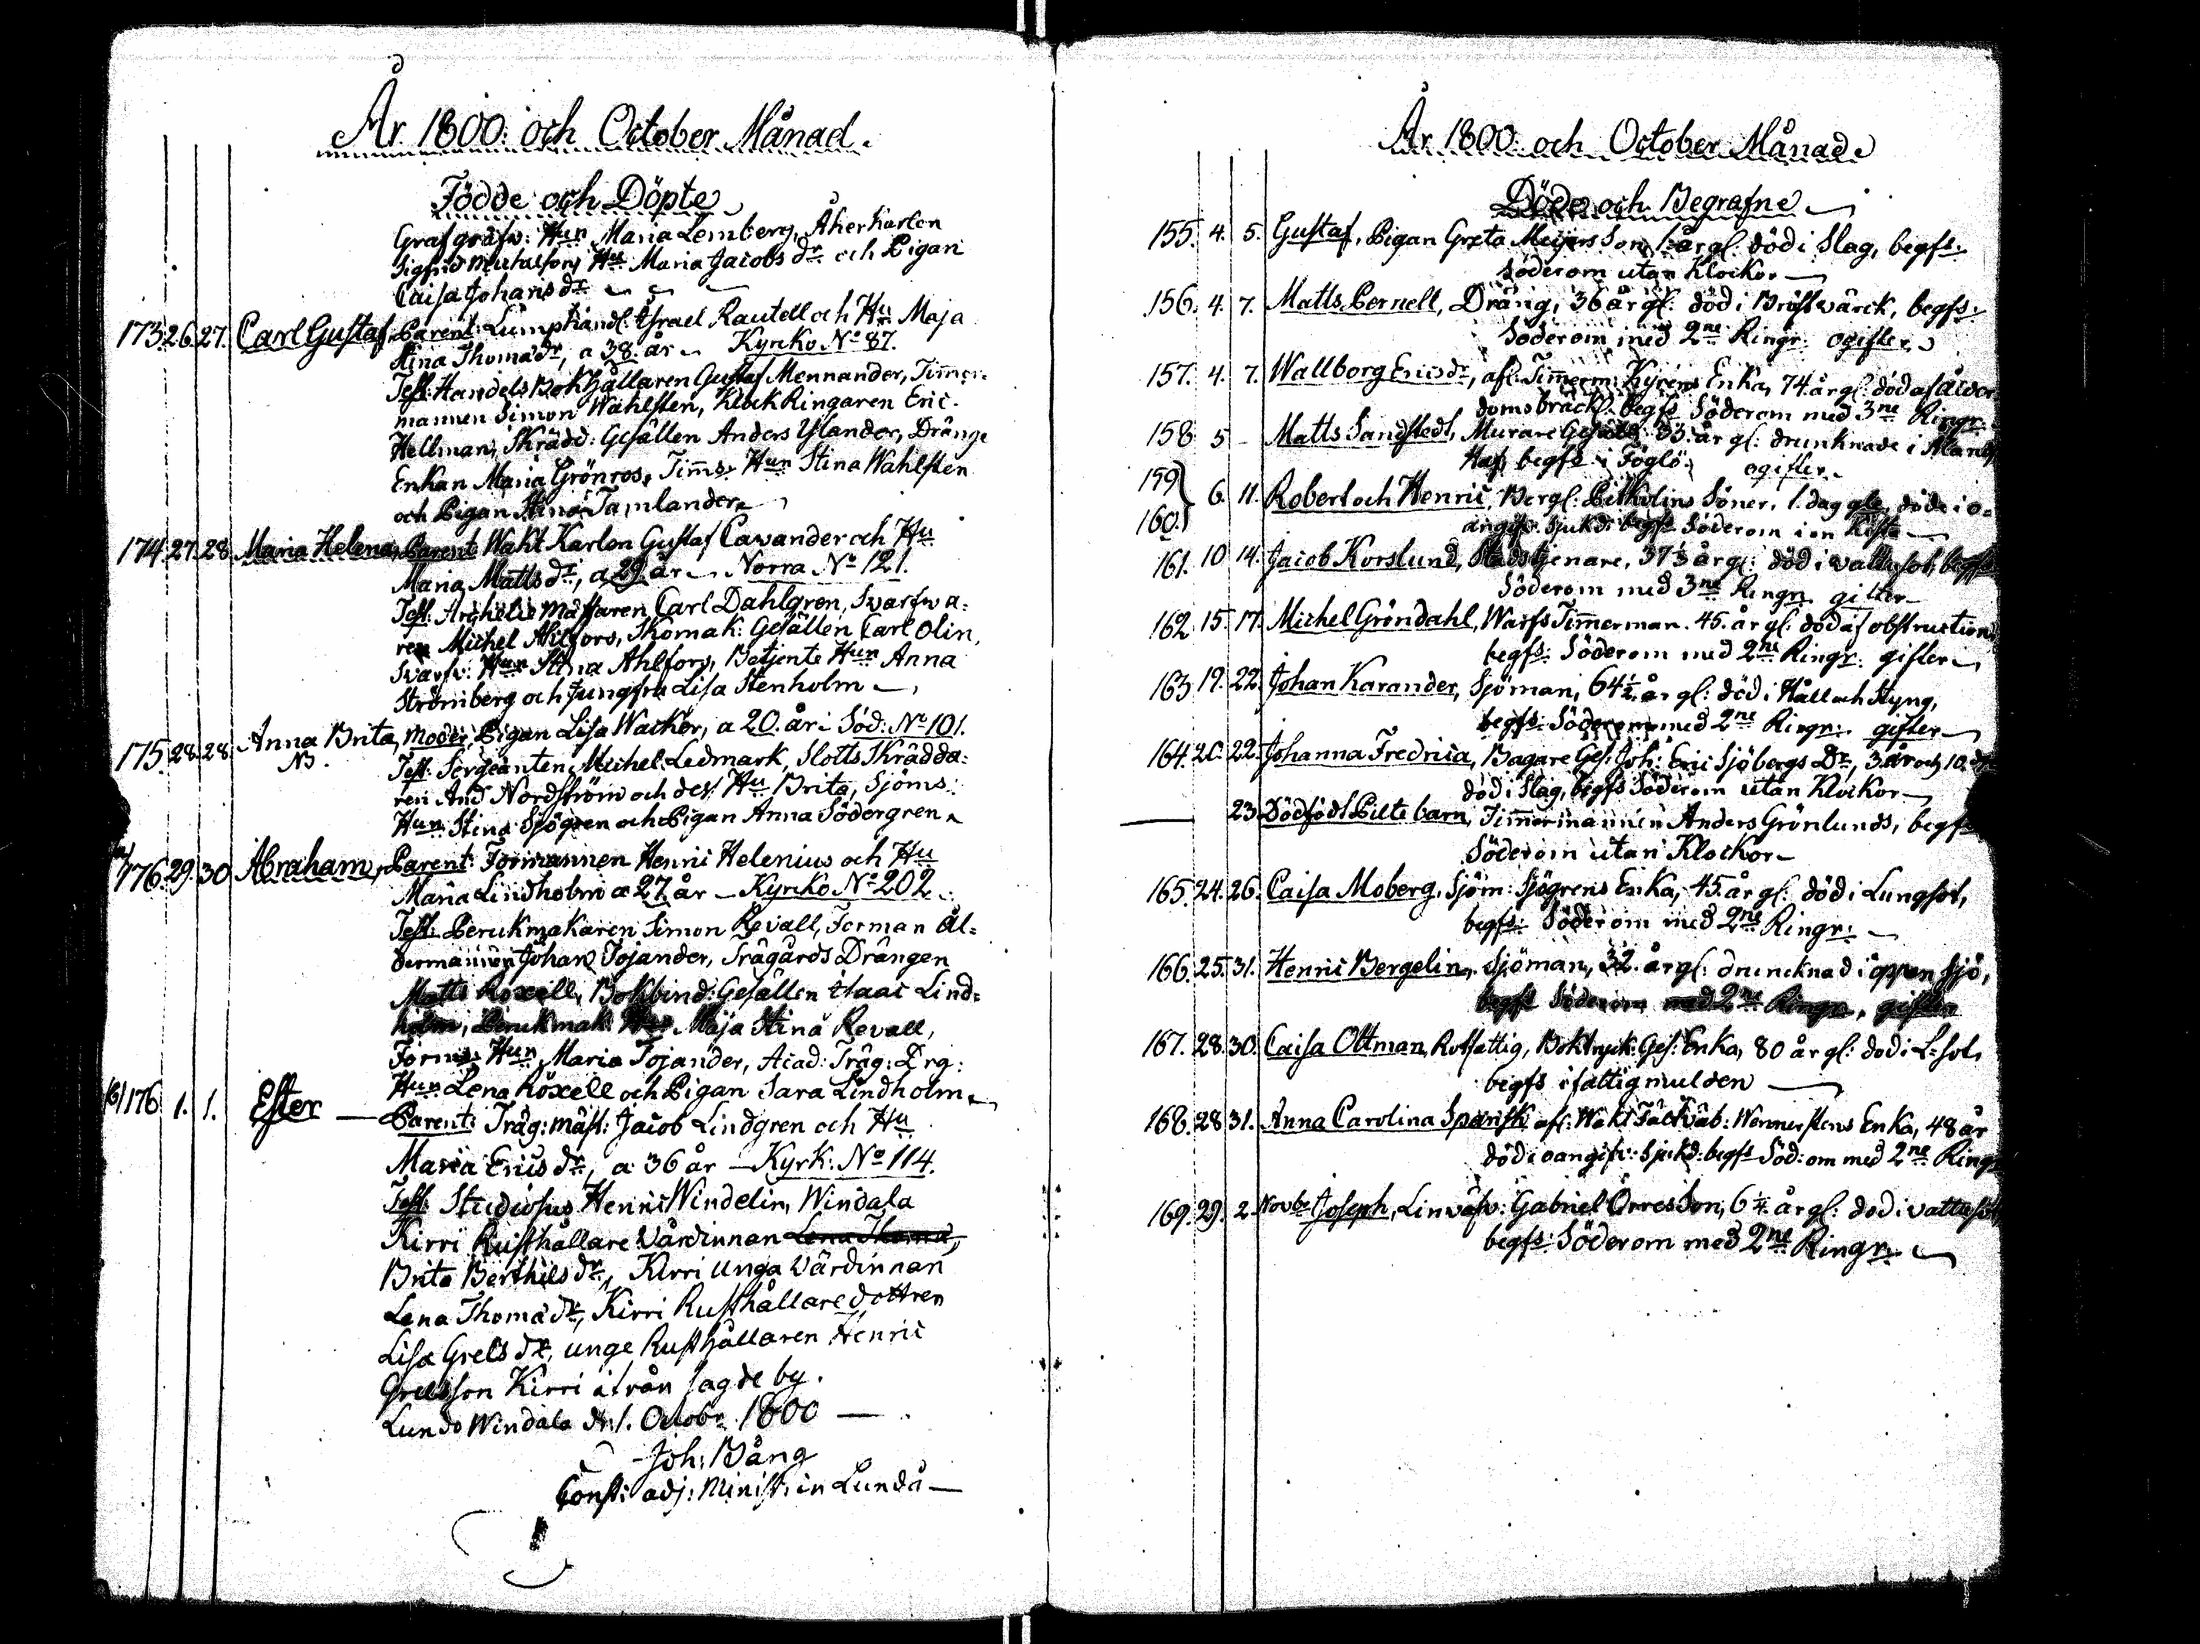 År 1800: och October Månad.
Födde och Döpte
Grafgräfw: Hun Maria Lemberg, Åkerkarlen
Sigfrid Michelsson, Hu Maria Jacobs dr och Pigan
Caisa Johans dr
173. 26. 27. Carl Gustaf, Parent: Lumphandl: Israel Rautell och Hu Maja
Stina Thoma dr, a 38. år Kyrko No 87.
Test: Handels Bokhållaren Gustaf Mennander, Timer-
mannen Simon Wahlsten, KlockRingaren Eric
Hellman, Skrädd: Gesällen Anders Ylander, Dränge
Enkan Maria Grönros, Tims Hun Stina Wahlsten
och Pigan Stina Tamlander
174. 27. 28. Maria Helena, Parent: Wakt Karlen Gustaf Cavander och Hu
Maria Matts dr, a 29 år Norra No 121.
Test: Archelie Mästaren Carl Dahlgren, Svarfwa-
ren Michel Ahlfors, Skomak: Gesällen Carl Olin,
Svarfv: Hun Stina Ahlfors, Betjente Hun Anna
Strömberg och Jungfru Lisa Stenholm
175. 28. 28. Anna Brita, Moder, Pigan Lisa Wacker, a 20. år i Söd: No 101.
NB. Test: Sergeanten Michel Ledmark, Slotts Skrädda-
ren And Nordström och des Hu Brita, Sjöms:
Hun Stina Sjögren och Pigan Anna Södergren
a) 176. 29. 30. Abraham, Parent: Formannen Henric Helenius och Hu
Maria Lindholm a 27 år Kyrko No 202
Test: Perukmakaren Simon Revall, Forman Ål-
dermannen Johan Tojander, Trägårds Drängen
Matts Roxell, Bokbind: Gesällen Isaac Lind-
holm, Perukmak: Maja Stina Revall,
Forms: Hun Maria Tojander, Acad: Träg: Drg:
Hun Lena Roxell och Pigan Sara Lindholm
b) 176 1. 1. Ester — Parent: Träg: mäst: Jacob Lindgren och Hu
Maria Erics dr, a 36 år — Kyrk: No 114.
Test: Studiosus Henric Windelin, Windala
Kirri Rusthållare Värdinnan Lena Thoma,
Brita Berthils dr, Kirri unga Värdinnan
Lena Thoma dr, Kirri Rusthållare dottren
Lisa Grels dr, unge Rusthållaren Henric
Grelsson Kirri ifrån sagde by.
Lundo Windala d. 1. Octobr 1800 —
Joh: Bång
Const: adj: Minist: in Lundå —
År 1800 och October Månad.
Döde och Begrafne
155. 4. 5. Gustaf, Pigan Greta Meijers Son, 1. år gl: död i Slag, begfs:
Söderom utan Klockor
156. 4. 7. Matts Pernell, Dräng, 36 år gl: död i Bröstwärck, begfs:
Söderom med 2ne Ringr: ogifter
157. 4. 7. Wallborg Erics dr, afl: Timerm: Kyrens Enka, 74 år gl: död af ålder
doms bräckl. begfs Söderom med 3ne Ringr:
158 5 - Matts Sandstedt, Murare Gesäll, 33. år gl: drunknade i Ålands
Haf, begfs i Föglö ogifter
159 160. } 6. 11. Robert och Henric, Bergl: Pitkolins Söner, 1. dag gle, döde i o-
angifn Sjukd: begfs Söderom i en Kista
161. 10 14. Jacob Korslund, Stadstjenare, 37 1/3 år gl: död i vattusot, begfs
Söderom med 3ne Ringn gifter
162. 15. 17. Michel Gröndahl, Warfs Timerman. 45. år gl: död af obstruction
begfs: Söderom med 2ne Ringr. gifter
163 19. 22. Johan Karander, Sjöman, 64 1/2 år gl: död i Håll och Styng,
begfs: Söderom med 2ne Ringr: gifter
164. 20. 22. Johanna Fredrica, Bagare Ges: Joh: Eric Sjöbergs Dr, 3 år och 10. dr
död i Slag, begfs Söderom utan Klockor
— 23. Dödfödt Pilte barn, Timermannen Anders Grönlunds, begfs
Söderom utan Klockor
165. 24. 26. Caisa Moberg, Sjöm: Sjögrens Enka, 45. år gl: död i Lungsot,
begfs: Söderom med 2ne Ringr:
166. 25. 31. Henric Bergelin, Sjöman, 32. år gl: druncknad i öppen sjö,
begfs Söderom med 2ne Ringr, gifter
167. 28. 30. Caisa Oltman, Rotfattig, Boktryck: Ges: Enka, 80 år gl: död i L: sot,
begfs i fattigmulden
168. 28 31. Anna Carolina Spansk afl: Wakt Fältväb: Wennerstens Enka, 48 år
död i oangifv: Sjukd: begfs Söd: om med 2ne Ringr
169. 29. 2. Novbr Joseph, Linväfv: Gabriel Orres Son, 6 1/4 år gl: död i vattusot
begfs: Söderom med 2ne Ringr: